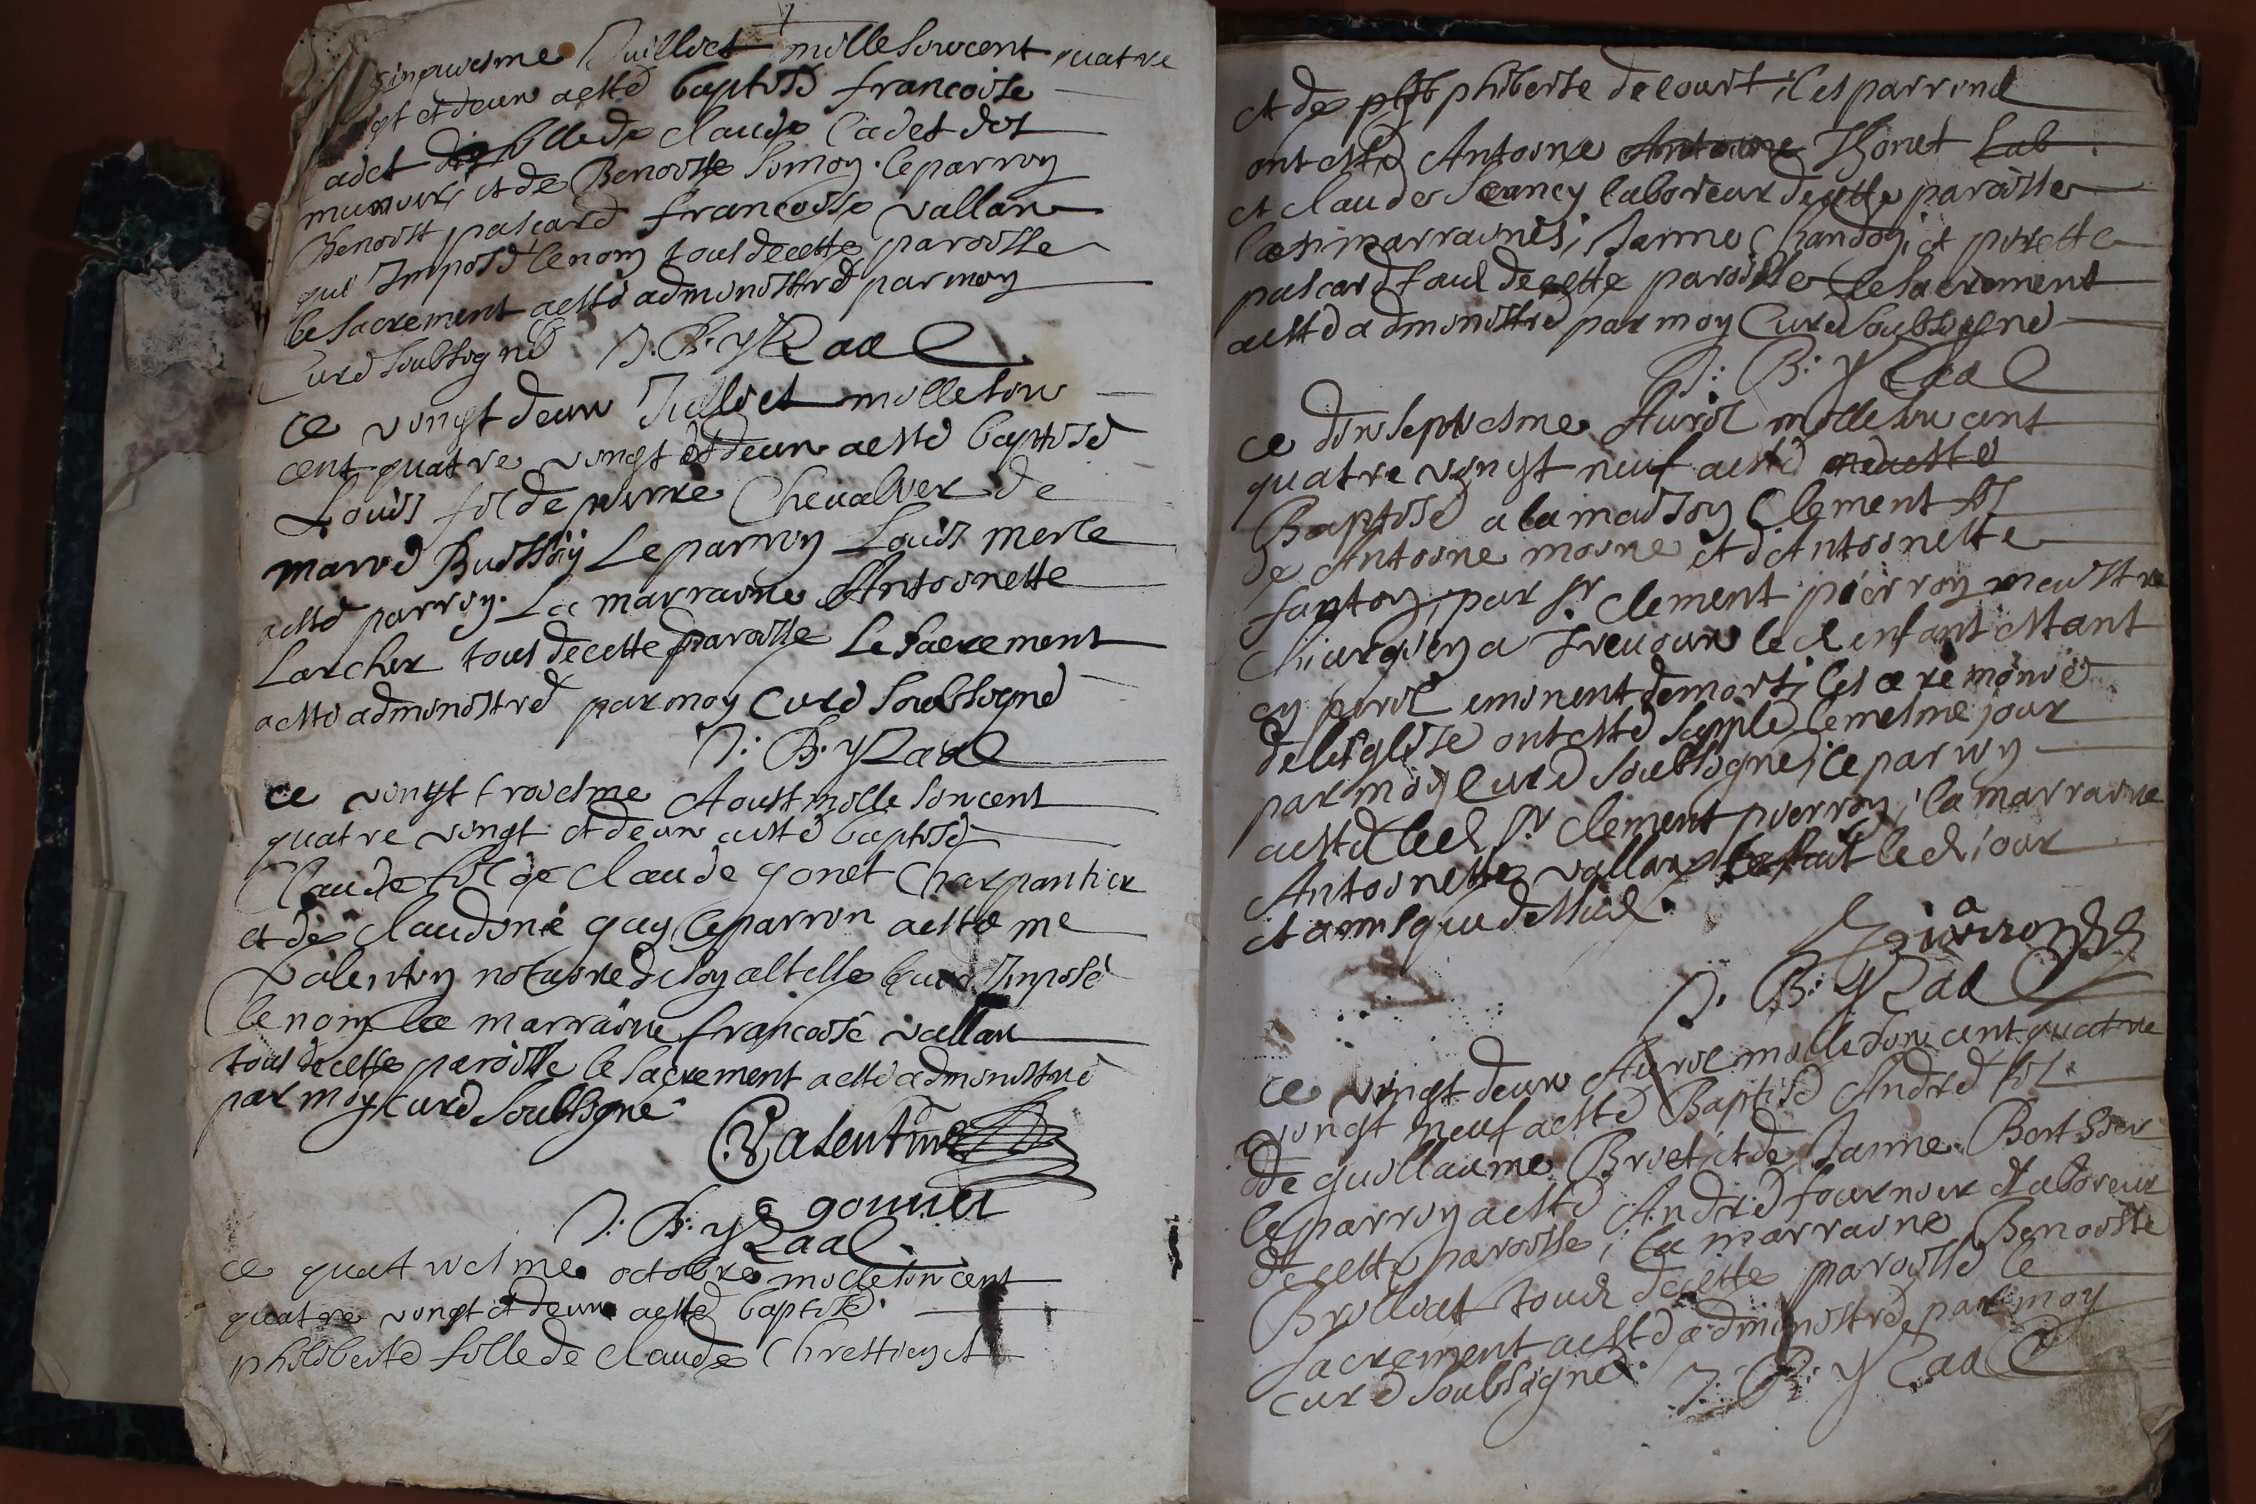 sinquiesme Juilliet mille sixcent quatre
gt et deux a esté baptisé francoise
adet fille de claude Cadet dit
et de Benoiste Simon. le parrin
Benoist pascard francoise vallan
qui Imposé le nom tous de cette paroisse
le sacrement a esté administré par moy
Curé soubsigné J: B: yzaac
Ce vingt deux Juilliet mille six
cent quatre vingt et deux a esté baptisé
Louis fil de pierre Chevalier de
marie Buisson Le parrin Louis merle
a esté parrin. La marraine Antoinette
Larcher tous de cette paroisse Le sacrement
a esté administré par moy Curé soubsigné
J: B: yzaac
Ce vingt troiesme Aoust mille sixcent
quatre vingt et deux a esté baptisé
Claude fil de Claude gonet Charpantier
et de Claudine guy le parrin a esté me
valentin notaire de son altesse qui a Imposé
le nom la marraine francoise vallan
tous de cette paroisse le sacrement a esté administré
par moy curé soubsigné
Valentin
gonnet
J: B: yzaac
Ce quatriesme octobre mille sixcent
quatre vingt et deux a esté baptisé
philiberte fille de Claude Chrestien et
et de phiberte decourt, les parrins
ont esté Antoine Antoine Thonet Lab
et claude Laboreur de cette paroisse
les marraines, Janne Chandon, et pierette
pascard tous de cette paroisse le sacrement
a esté administré par moy Curé soubsigné
J: B: yzaac
Ce dix septiesme Avril mille six cent
quatre vingt neuf a esté
Baptisé a la maison Clement fil
de Antoine moine et d'Antoinette
fanton, par sr Clement pierron meistre
Chirurgien a Trevoux led enfant estant
en peril eminent de mort, les ceremonies
de leglise ont esté supplé le mesme jour
par moy Curé soubsigné, le parrin
a esté led sr Clement pierron, la marraine
Antoinette vallan fait led jour
et an que dessus.
Pierron
J: B: yzaac
Ce vingt deux Avril mille six cent quatre
vingt neuf a esté Baptisé André fil
de guillaume Briet, et de Janne Bert
le parrin a esté André fournier Laboreur
de cette paroisse, la marraine Benoiste
Brilliat tous de cette paroisse le
sacrement a esté administré par moy
curé soubsigné. J: B: yzaac